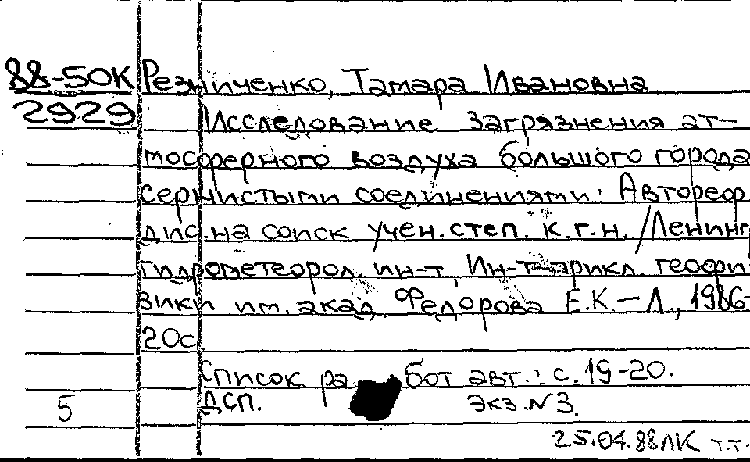 88-50К Резниченко, Тамара Ивановна
2929 Исследование загрязнения ат-
мосферного воздуха большого города
сернистыми соединениями: Автореф
дис.на соиск учен.степ. к.г.н. /Ленингр
гидрометеорол. ин-т, Ин-т прикл. геофи-
зики им. акад. Федорова Е.К. - Л., 1986-
20с
Список ра бот авт.: с. 19-20.
5 ДСП. Экз. N 3.
25.04.88 ЛК т.т.